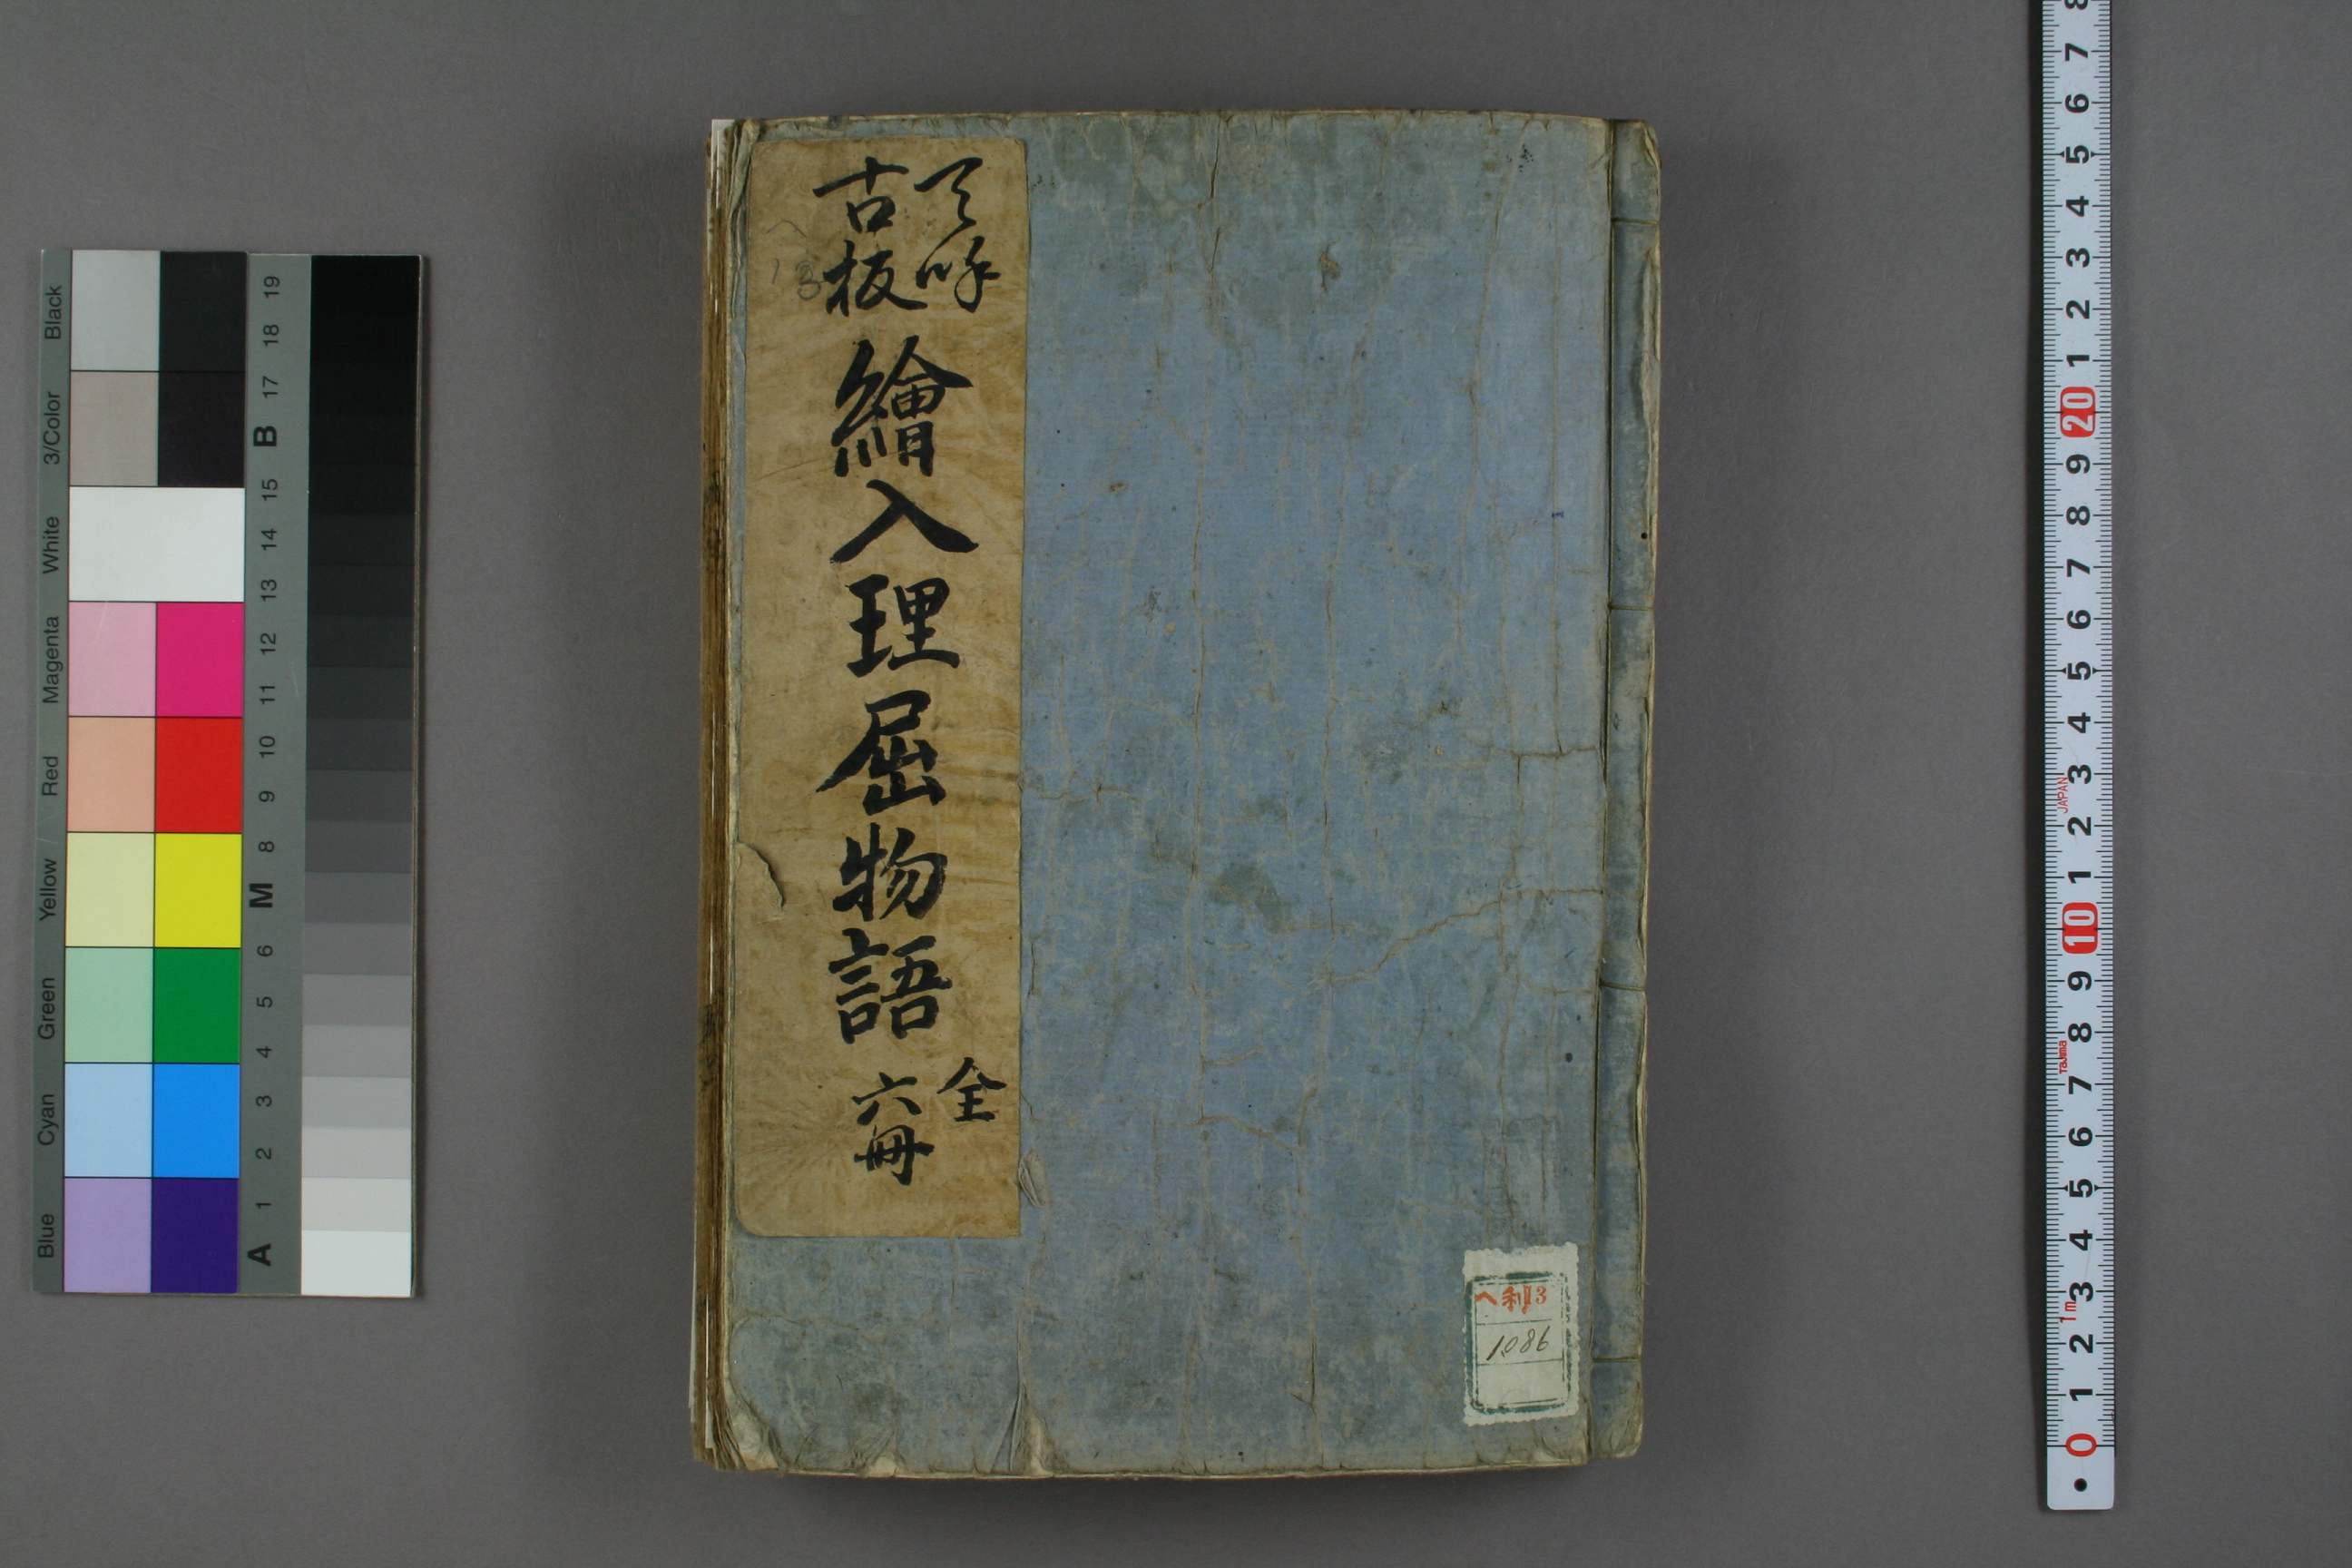 天呼
古板
繪入理屈物語
全
六冊
ヘ13
1086
Black
3/Color
White
Magenta
Red
Yellow
Green
Cyan
Blue
19
18
17
B
15
14
13
12
11
10
9
8
M
6
5
4
3
2
1
A
8
7
6
5
4
3
2
1
20
9
8
7
6
5
4
3
JAPAN
2
1
10
9
8
Tajima
7
6
5
4
3
1m
2
1
0